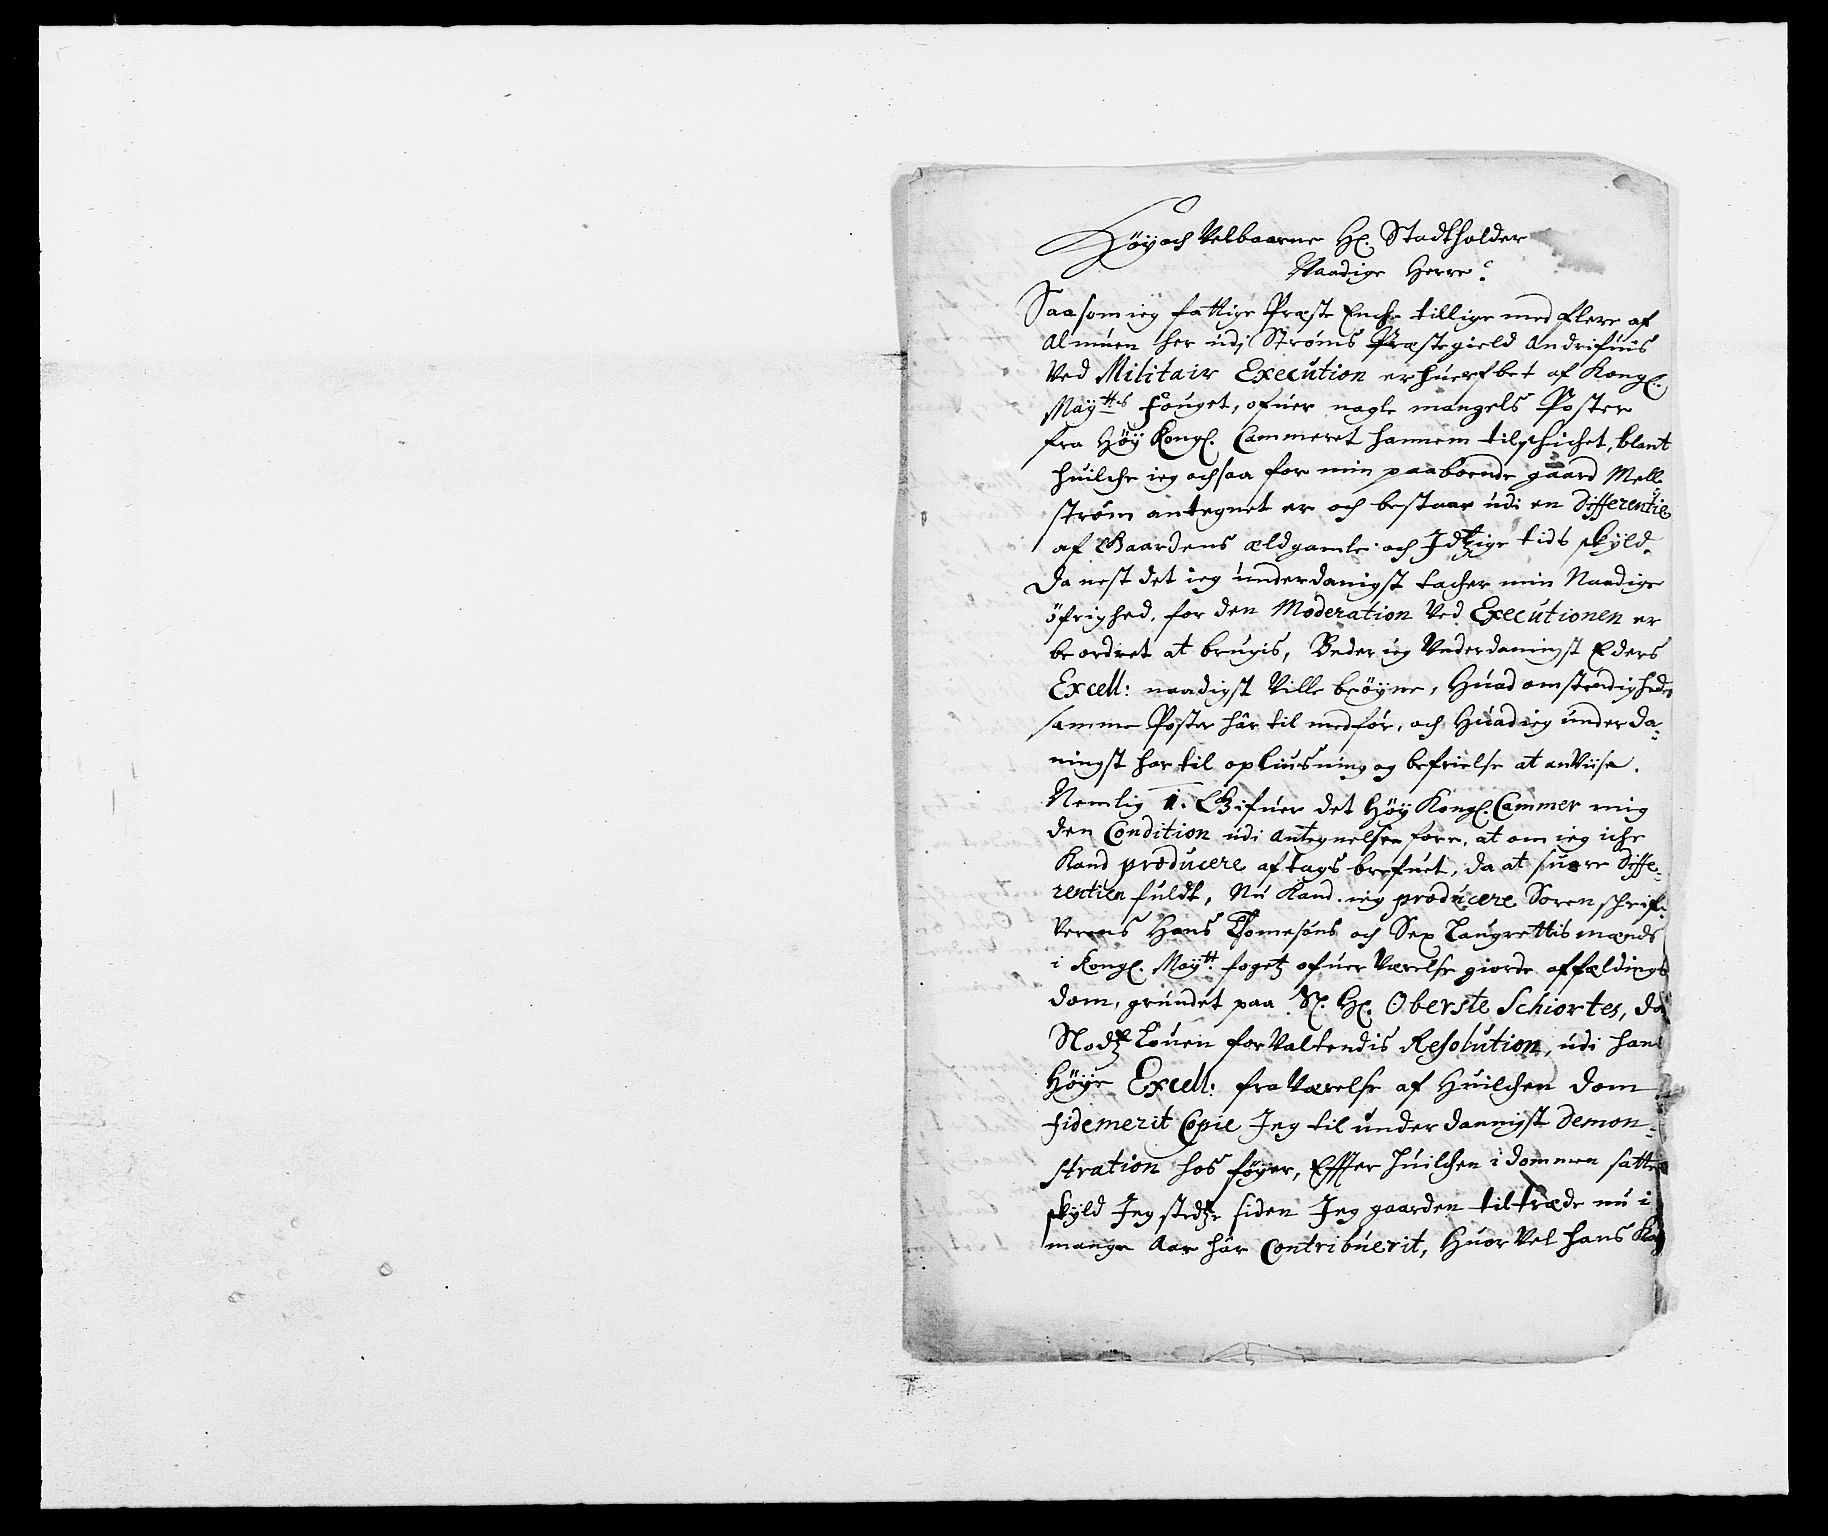 Høy och Velbaarne Hr. Stadtholder
Naadige Herre.
Saasom ieg fattige Præste Enche tillige med flere af
Almuen her udj Strøms Præstegield Andrifuis
Ved Militair Execution erhuerfbet af Kongl.
Maytts Fouget, ofuer nogle mangels Poster
fra Høy Kongl. Cammeret hannem tilschichet, blant
huilche ieg ochsaa for min paaboende gaard Mell
strøm antegnet er och bestaar udi en Differentie
af Gaardens ældgamle och Jdtzige tids skyld.
Da nest det ieg underdanigst tacher min Naadige
öfrighed, for den Moderation Ved Executionen er
beordret at brugis, Beder ieg Underdanigst Eders
Excell: naadigst Ville beöyne, Huad omstendigheder
samme Poster hâr til medfør, och Huad ieg underda-
nigst har til opliusning og befrielse at anViise.
Nemlig 1. Gifuer det Høy Kongl. Cammer mig
den Condition udi Antegnelsen fore, at om ieg iche
Kand producere aftags brefuet, da at suare Diffe-
rentien fuldt, Nu Kand ieg producere Sorenschrif-
verens Hans Thomesøns och Sex Laugrettis mænds
i Kongl. Maytt. fogetz ofuerværelse giorde affældings
dom, grundet paa Sl. Hr. Oberste Schiortes, da
Stadtz Louen forValtendis Resolution, udi hans
Høye Excell: fraVærelse af Huilchen Dom
fidemerit Copie Jeg til underdannigst Demon-
stration hos føyer, Effter huilchen i dommen satte
skyld Jeg stedtze siden Jeg gaarden tiltræde nu i
mange Aar hâr Contribuerit, Huor Vel hans